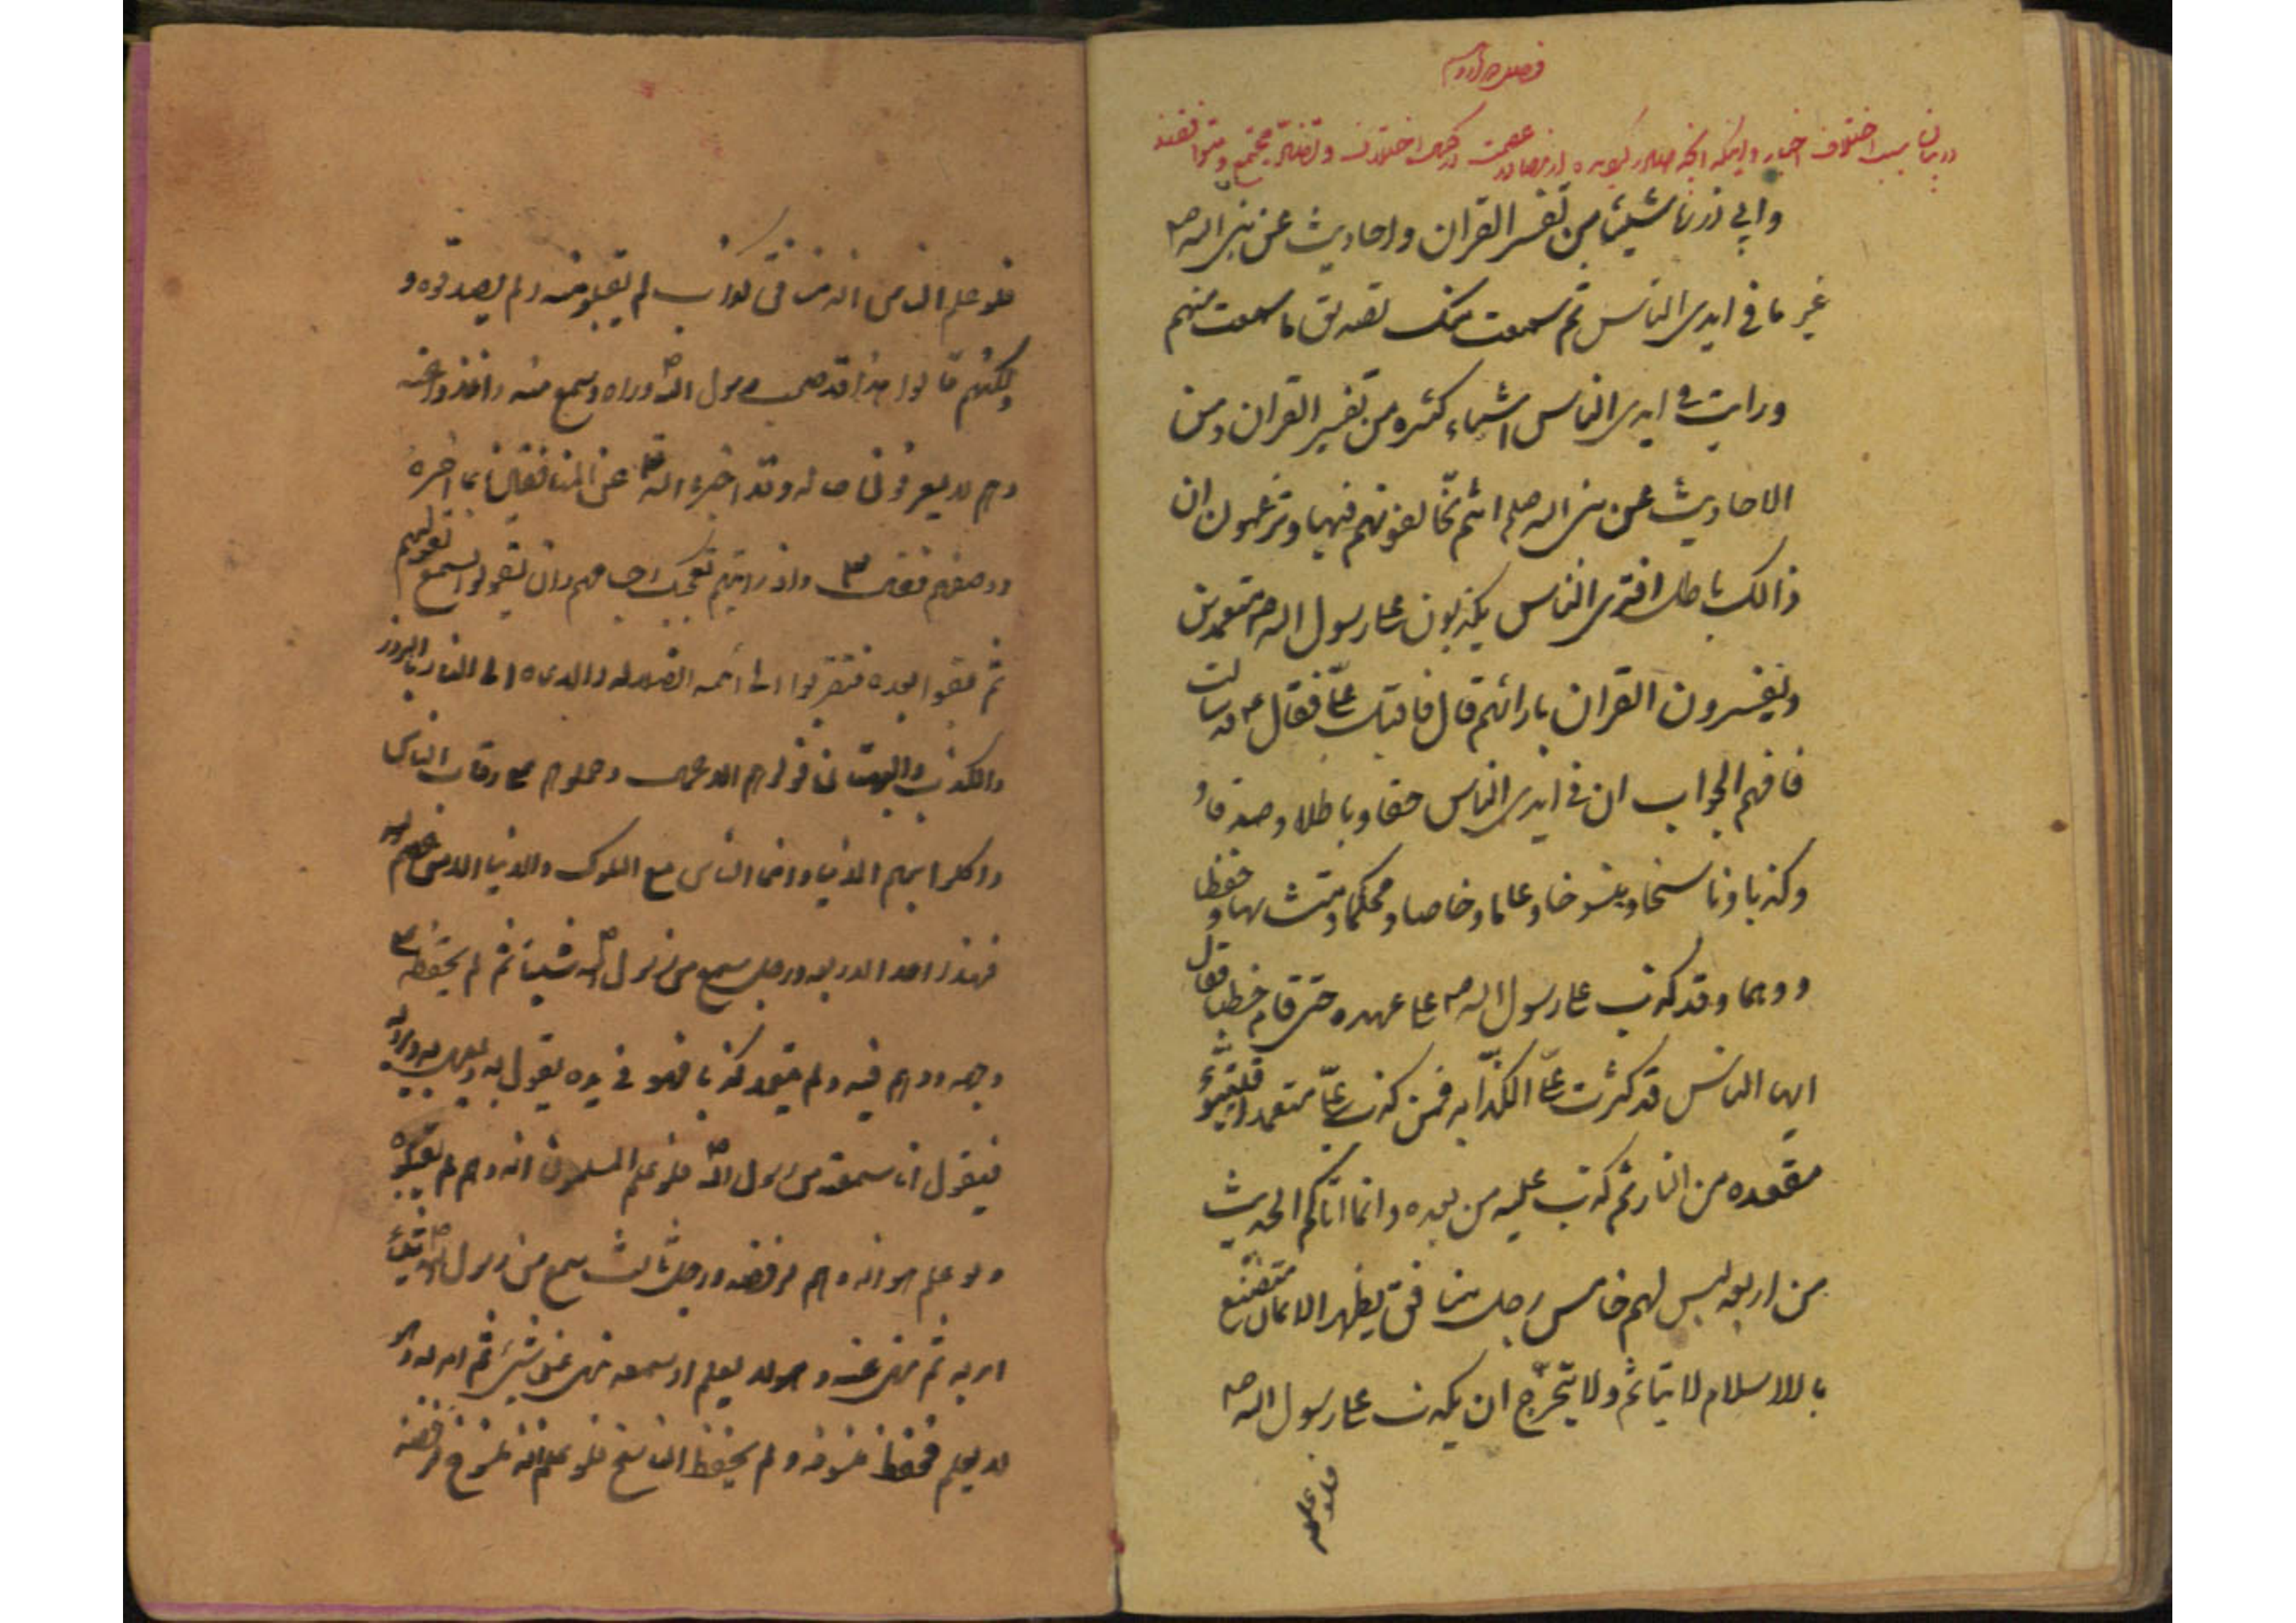 در بیان سبب اختلاف اخبار و اینکه آنچه صادر کردیده از مصادر عصمت
وابي ذر نا شيئا من تفسر القران واحاديث عن نبي الله ص
غير ما في ايدي الناس ثم سمعت منك تصديق ما سمعت منهم
ورايت في ايدي الناس اشياء كثيره من تفسير القران ومن
الاحاديث عن نبي الله صلم انتم تخالفونهم فيها وتزعمون ان
ذالك باطل افترى الناس يكذبون على رسول الله ص متعمدين
ويفسرون القران بارائهم قال فاقبل علي فقال ع قد سالت
فافهم الجواب ان في ايدي الناس حقا وباطلا وصدقا و
وكذبا وناسخا ومنسوخا وعاما وخاصا ومحكما ومتشابها وحفظا
ووهما وقد كذب على رسول الله ص على عهده حتى قام خطيبا فقال
ايها الناس قد كثرت عليّ الكذّابه فمن كذب عليّ متعمدا فليتبوّء
مقعده من النار ثم كذب عليه من بعده وانما اتاكم الحديث
من اربعه ليس لهم خامس رجل منافق يظهر الايمان متصنع
بالاسلام لا يتاثم ولا يتحرّج ان يكذب على رسول الله ص
فلو علم
فلو علم الناس انه منافق كذاب لم يقبلو منه ولم يصدقوه و
ولكنهم قالوا هذا قد صحب رسول الله ص وراه وسمع منه واخذوا عنه
وهم لا يعرفون حاله وقد اخبره الله عن المنافقين بما اخبره
ووصفهم فقال واذ رايتهم تعجبك اجسامهم وان يقولوا تسمع لقولهم
ثم بقوا بعده فتقربوا الى ائمه الضلاله والدعاه الى النار بالزور
والكذب والبهتان فولوهم الاعمال وحملوهم على رقاب الناس
واكلوا بهم الدنيا وانما الناس مع الملوك والدنيا الا من عصم الله
فهذا احد الاربعه ورجل سمع من رسول الله ص شيئا ثم لم يحفظه
وجهه ووهم فيه ولم يتعمد كذبا فهو في يده يقول به ويعمل به ويرويه
فيقول انا سمعته من رسول الله ص فلو علم المسلمون انه وهم لم يقبلوه
ولو علم هو انه وهم لرفضه ورجل ثالث سمع من رسول الله ص شيئا
امر به ثم نهى عنه وهو لا يعلم او سمعه نهى عن شيئ ثم امر به وهو
لا يعلم فحفظ منسوخه ولم يحفظ الناسخ فلو علم انه منسوخ لرفضه